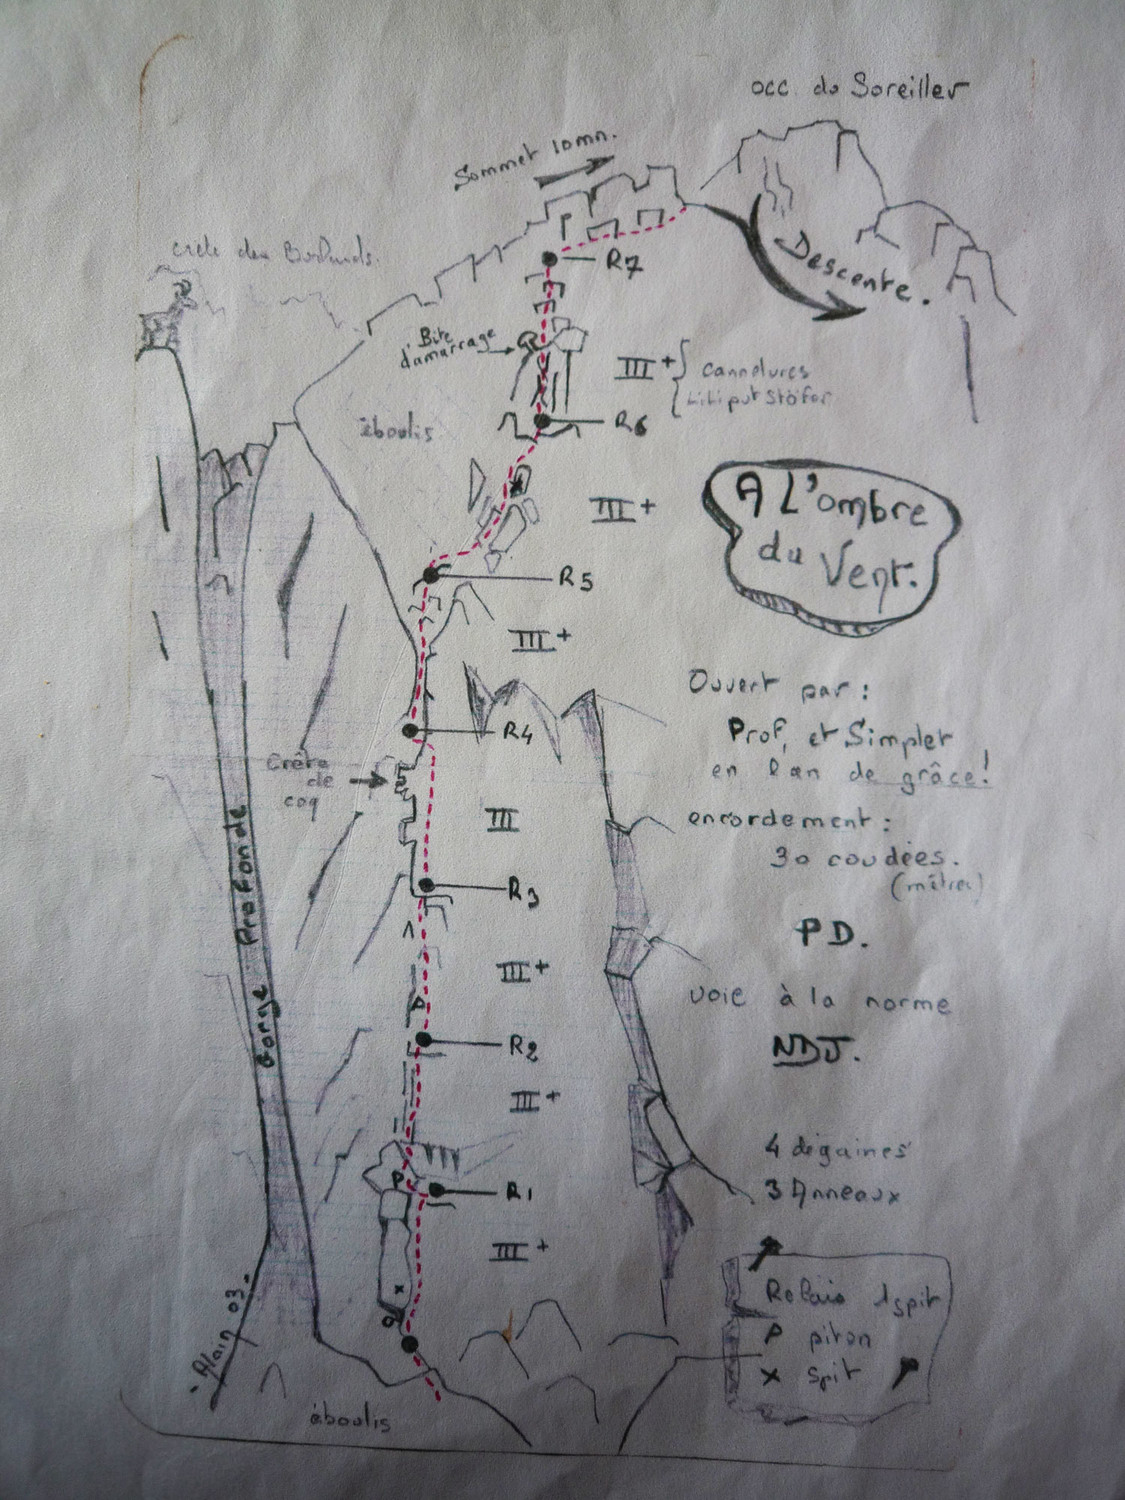 occ. du Soreiller
Sommet 10mn.
crête des
R7
Descente.
Bite
d'amarrage
III + cannelures
R6
éboulis
III +
A L'ombre
du Vent.
R5
III +
Ouvert par :
Prof, et Simplet
en l'an de grâce !
R4
Crête
de
coq
III
encordement :
30 coudées.
(mètres)
R3
PD.
Gorge Profonde
III +
voie à la norme
P
R2
NDJ.
III +
4 dégaines
3 Anneaux
P
R1
III +
x
Relais 1 spit
P piton
x spit
Alain 03.
éboulis